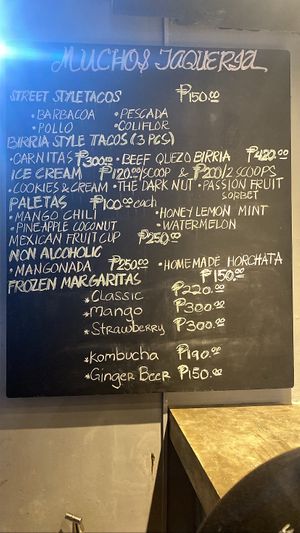 MUCHOS TAQUERIA
STREET STYLE TACOS ₱150.00
• BARBACOA • PESCADA
• POLLO • COLIFLOR
BIRRIA STYLE TACOS (3 PCS)
• CARNITAS ₱300.00 • BEEF QUEZO BIRRIA ₱420.00
ICE CREAM ₱120.00/SCOOP & ₱200/2 SCOOPS
• COOKIES & CREAM • THE DARK NUT • PASSION FRUIT SORBET
PALETAS ₱100.00 each
• MANGO CHILI • HONEY LEMON MINT
• PINEAPPLE COCONUT • WATERMELON
MEXICAN FRUIT CUP ₱250.00
NON ALCOHOLIC
• MANGONADA ₱250.00 • HOMEMADE HORCHATA ₱150.00
FROZEN MARGARITAS
• CLASSIC ₱220.00
• MANGO ₱300.00
• STRAWBERRY ₱300.00
• KOMBUCHA ₱190.00
• GINGER BEER ₱150.00